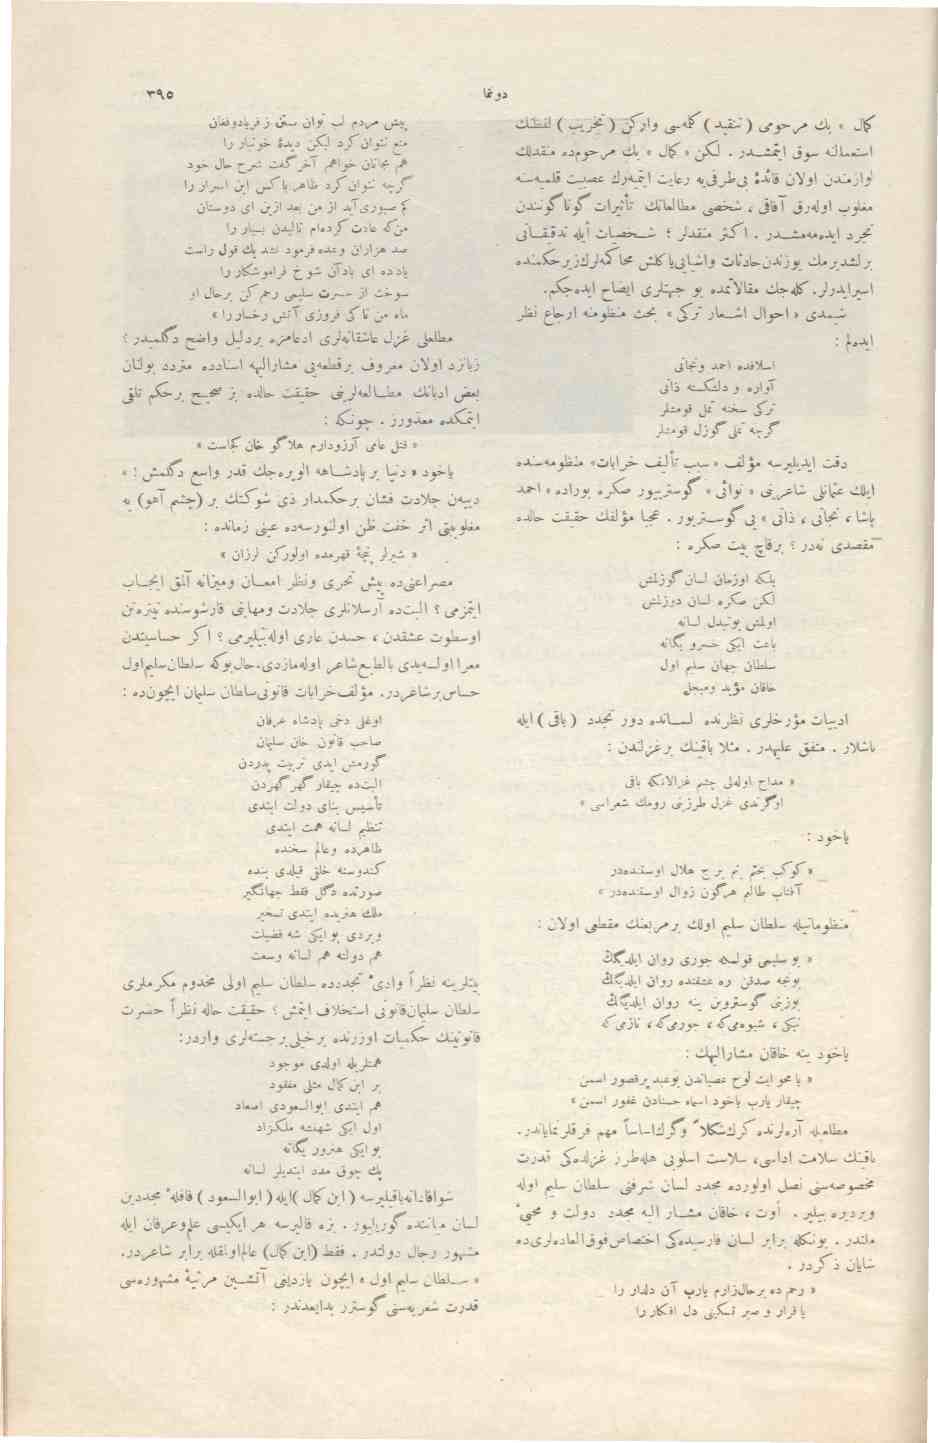 دوننما
٣٩٥
كمال » بك مرحومى ( تنقيد ) كلمه‌سى واركن ( تخريب ) لفظنك
استعمالنه سوق ايتمشدر . لكن « كمال » بك مرحومده منقدلك
لوازمندن اولان قائدۀ بى‌طرفى‌يه رعايت ايتميه‌رك عصبيت قلميه‌سنه
مغلوب اوله‌رق آفاقى ، شخصى مطالعاتك تأثيرات گوناگونندن
تجرد ايده‌مه‌مشدر . اكثر منقدلر ؛ شخصيات ايله تدقيقاتى
برلشديرمك يوزندن حادثات واشيايى ياكلش محاكمه‌لرك زير حكمنده
اسير ايدرلر. كله‌جك مقالاتمده بو جهتلرى ايضاح ايده‌جكم.
شيمدى « احوال اشعار تركى » بحث منظومنه ارجاع نظر
ايده‌لم :
اسلافده احمد ونجاتى
آواره و دلشكسته ذاتى
تركى سخنه تمل قومشلر
گرچه تملى گوزل قومشلر
دقت ايديليرسه مؤلف « سبب تأليف خرابات» منظومه‌سنده
ايلك عثمانلى شاعرينى « نوائى » گوستريبور صكره بوراده « احمد
پاشا ، نجاتى ، ذاتى » يى گوستريور. عجبا مؤلفك حقيقت حالده
مقصدى نه‌در ؟ برقاچ بيت صكره :
بلكه اوزمان لسان گوزلمش
لكن صكره لسان دوزلمش
اولمش بوتبدل لسانه
باعث ايكى خسرو يگانه
سلطان جهان سليم اول
خاقان مؤيد ومبجل
ادبيات مؤرخلرى نظرنده لسانده دور تجدد ( باقى ) ايله
باشلار . متفق عليهدر . مثلا باقينك برغزلندن :
« مداح اوله‌لى چشم غزالانكه باقى
اوگرندى غزل طرزينى رومك شعراسى »
ياخود :
« كوكب بختم بنم برج هلال اوستنده‌در
آفتاب طالعم هرگون زوال اوستنده‌در »
منظوماتيله سلطان سليم اولك برمربعنك مقطعى اولان :
« بو سليمى قولكه جورى روان ايلديگك
بونجه صدقن ره عشقنده روان ايلديگك
يوزينى گوسترو بن ينه روان ايلديگك
نيكى ، شيوه‌مى‌كه ، جورمى‌كه ، نازمى‌كه
ياخود ينه خاقان مشاراليهك :
« يا محو ايت لوح عصياندن بوعبد پرقصور اسمن
چيقار يارب ياخود اسماء حسنادن غفور اسمن »
مطلعيله آره‌لرنده كرك شكلاً وگرك اساساً مهم فرقلر نماياندر.
باقينك سلامت اداسى، سلاست اسلوبى هله طرز غزلده‌كى قدرت
مخصوصه‌سنى نصل اولورده مجدد لسان شرفنى سلطان سليم اوله
ويرديره بيلير . اوت ، خاقان مشار اليه مجدد دولت و محيىء
ملتدر . بونكله برابر لسان فارسيده‌كى اختصاص فوق العاده‌لرى‌ده
شايان ذكردر .
« رحم ده برحال زارم يارب آن دلدار را
يا قرار و صبر تسكينى دل افكار را
پيش مردم لب توان بستن ز فريادوفغان
منع نتوان كرد ليكن ديدۀ خونبار را
هم بجانان خواهم آخر گفت شرح حال خود
گرچه نتوان كرد ظاهر باكس اين اسرار را
كم صبورى آيد از من بعد ازين اى دوستان
من كه عادت كرده‌ام ناليدن بسيار را
صد هزاران وعده فرمود نشد يك قول راست
ياد ده اى بادآن شوخ فراموشكار را
سوخت از حسرت سليمى رحم كن برحال او
ماه من تاكى فروزى آتش رخسار را »
مطلعلى غزل عاشقانه‌لرى ادعامزه بردليل واضح دگلميدر ؟
زبانزد اولان معروف برقطعه‌يى مشاراليهه اسنادده متردد بولنان
بعض ادبانك مطالعه‌لرينى حقيقت حالده بز صحيح برحكم تلقى
ايتمكده معذورز . چونكه :
« قتل عامى آرزودارم هلاگو خان كجاست »
ياخود « دنيا بر پادشاهه الويره‌جك قدر واسع دگلمش ! »
ديين جلادت فشان برحكمدار ذى شوكتك بر (چشم آهو) يه
مغلوبيتى اثر خفت ظن اولنورسه‌ده عينى زمانده :
« شيرلر پنجۀ قهرمده اولوركن لرزان »
مصراعنى‌ده پيش تحرى ونظر امعان وميزانه آلمق ايجاب
ايتمزمى ؟ البتده آرسلانلرى جلادت ومهابتى قارشوسنده تيتره‌تن
اوسطوت عشقدن ، حسدن عارى اوله‌بيليرمى ؟ اكر حساسيتدن
معرا اولسه‌يدى بالطبع شاعر اوله‌مازدى. حال بوكه سلطان سليم اول
حساس برشاعردر. مؤلف خرابات قانونى سلطان سليمان ايچون‌ده :
اوغلى دخى پادشاه عرفان
صاحب قانون خان سليمان
گورمش ايدى تربيت پدردن
البتده چيقار گهر گهردن
تأسيس بناى دولت ايتدى
تنظيم لسانه همت ايتدى
ظاهرده وعالم سخنده
كندوسنه خلقى قيلدى بنده
صورتده دگل فقط جهانگير
ملك هنريده ايتدى تسخير
ويردى بو ايكى شه فضيلت
هم دولته هم لسانه وسعت
بيتلرينه نظراً وادىء تجددده سلطان سليم اولى مخدوم مكرملرى
سلطان سليمان قانونى استخلاف ايتمش ؟ حقيقت حاله نظراً حضرت
قانونينك حكميات اوزرنده برخيلى برجسته‌لرى واردر:
همتلريله اولدى موجود
بر ابن كمال مثلى مفقود
هم ايتدى ابوالسعودى اصعاد
اول ايكى شهنشه ملكزاد
بو ايكى هنرور يگانه
پك چوق مدد ايتديلر لسانه
شوافاداته باقيليرسه ( ابن كمال ) ايله ( ابوالسعود ) قافلۀ مجددين
لسان مياننده گوريليور. بزه قاليرسه هر ايكيسى علم وعرفان ايله
مشهور رجال دولتدر . فقط (ابن كمال) عالم اولمقله برابر شاعردر.
« سلطان سليم اول » ايچون يازديغى آتشين مرثيۀ مشهوره‌سى
قدرت شعريه‌سنى گوسترر بدايعدندر :